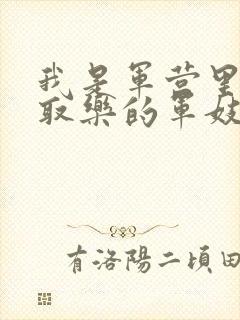 我是军营里
取樂的军妓
有洛陽二頃田